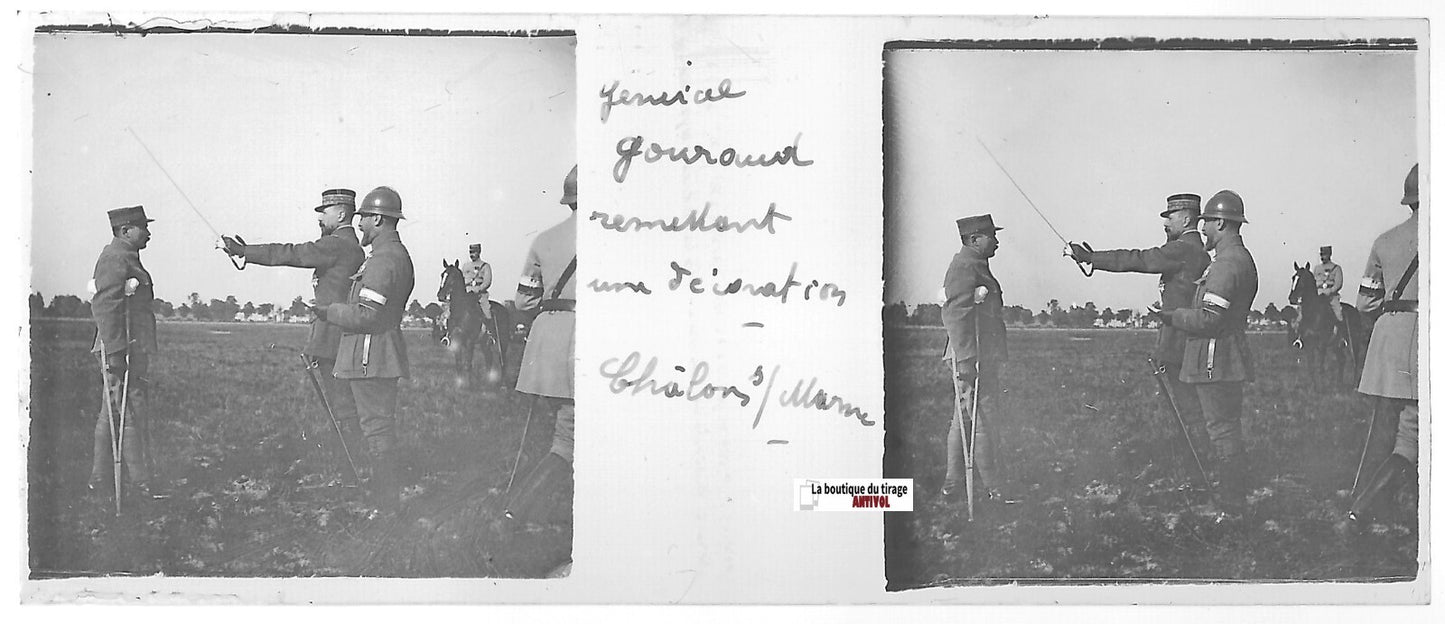 général
Gouraud
remettant
une décoration
Châlons s/ Marne
La boutique du tirage
ANTIVOL